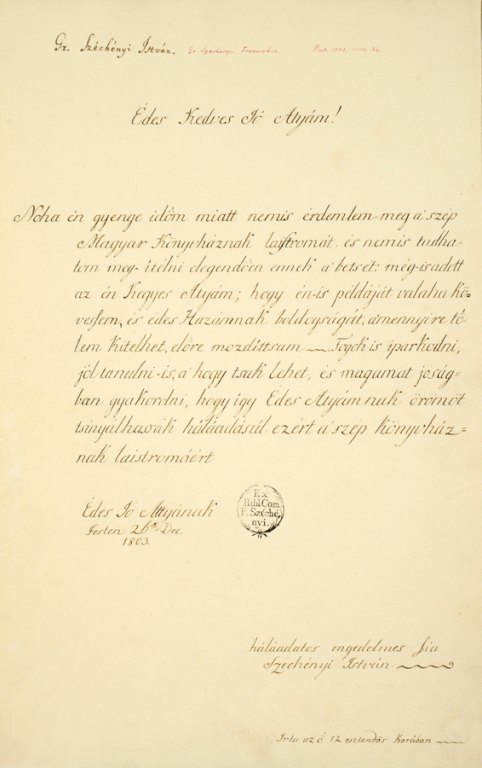 Gr. Széchényi István. Gr. Széchényi Ferenczhez
Édes Kedves Jó Atyám!
Noha én gyenge időm miatt nemis érdemlem-meg a' szép
Magyar Könyvháznak laistromát, és nemis tudha-
tom meg-ítélni elegendően ennek a' betsét: még-is adott
az én Kegyes Atyám; hogy én-is példáját valaha kö-
vessem, és édes Hazámnak boldogságát, amennyire tő-
lem kitelhet, előre mozdíttsam — Fogok is iparkodni,
jól tanúlni-is, a' hogy tsak lehet, és magamat jóság-
ban gyakorolni, hogy így Édes Atyámnak örömöt
tsinyálhassak háláadásúl ezért a' szép könyvház-
nak laistromáért
Édes Jó Attyának
Pesten 26 Dec.
1803.
Ex
Bibl. Com.
F. Széché-
nyi.
háláadatos engedelmes fia
Szechényi István
Irta az ő 12 esztendős Korában